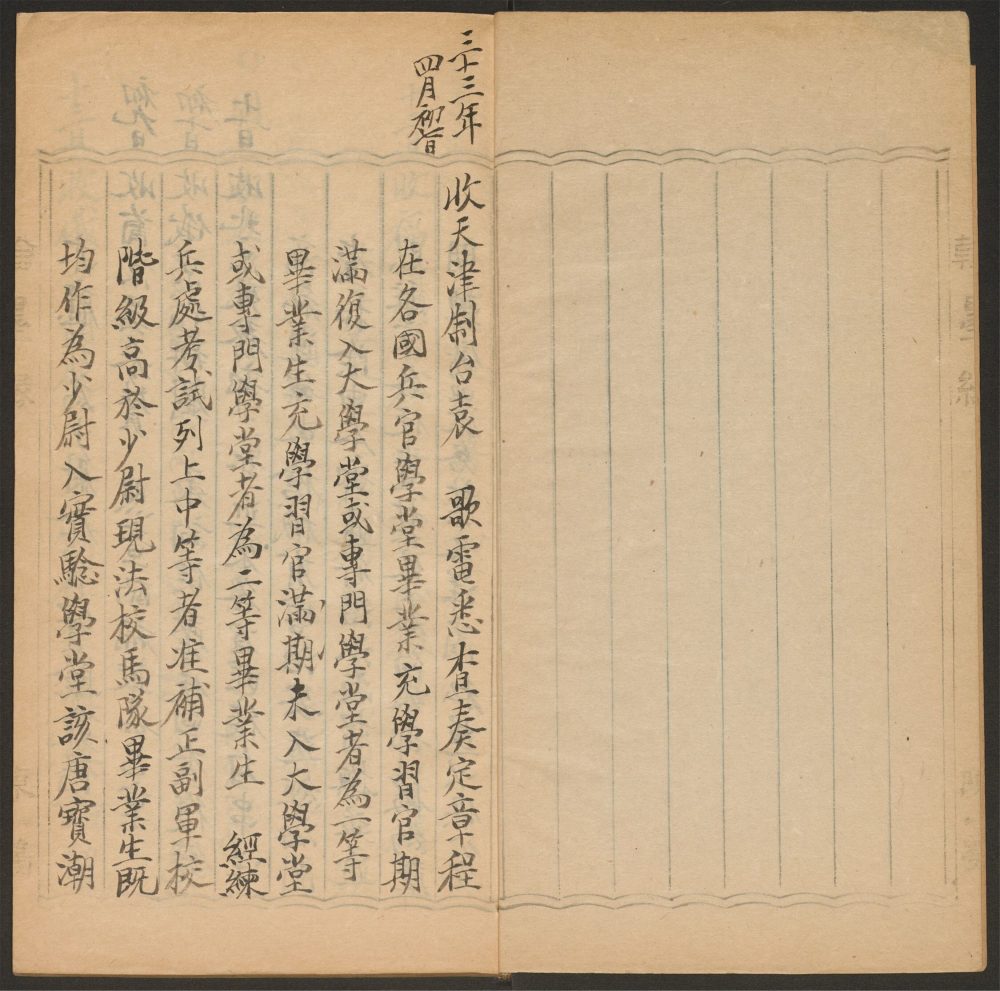 三十三年
四月初
收天津制台袁 歌電悉查奏定章程
在各國兵官學堂畢業充學習官期
滿復入大學堂或專門學堂者為一等
畢業生充學習官滿期未入大學堂
或專門學堂者為二等畢業生 經練
兵處考試列上中等者准補正副軍校
階級高於少尉現法校馬隊畢業生既
均作為少尉入實驗學堂該唐寶潮